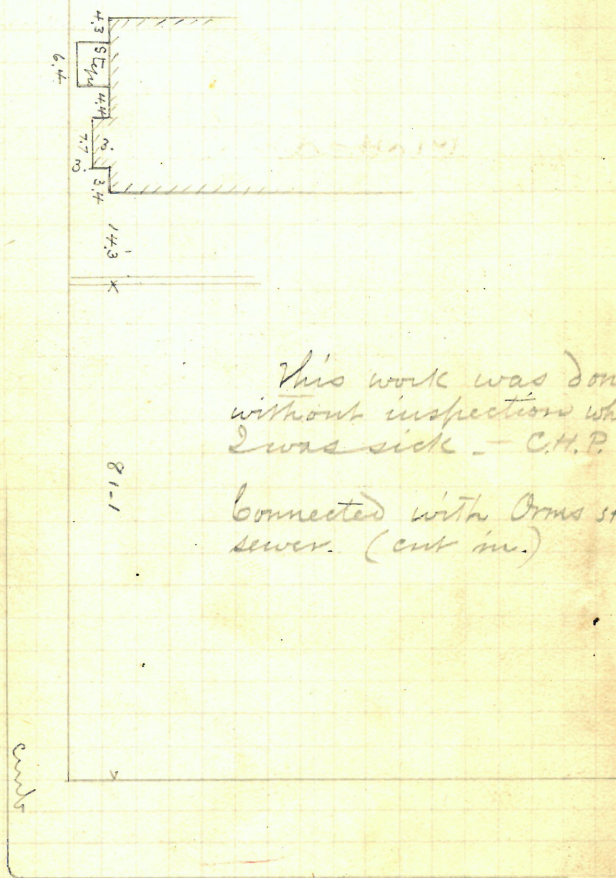 4.3
Steps
6.4
4.4
3
7.7
3
3.4
14.3
81-1
This work was don
without inspection wh
I was sick. - C.H.P.
Connected with Orms st
sewer. (cut in.)
curb